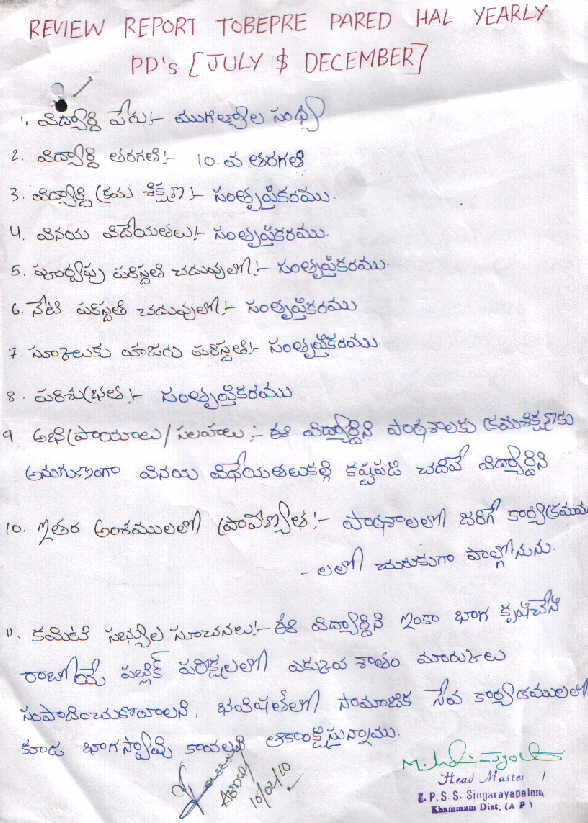 REVIEW REPORT TOBEPRE PARED HAL YEARLY
PD's [JULY $ DECEMBER]
1. విద్యార్థి పేరు:- ముగళ్ళాల సంధ్య
2. విద్యార్థి తరగతి:- 10 వ తరగతి
3. విద్యార్థి క్రమ శిక్షణ:- సంతృప్తికరము.
4. వినయ విదేయతలు:- సంతృప్తికరము.
5. పూర్వపు పరిస్థితి చదువులో:- సంతృప్తికరము
6. నేటి పరిస్థితి చదువులో:- సంతృప్తికరము
7 సూకలుకు హాజరు పరిస్థితి:- సంతృప్తికరము
8. పరిశుభ్రత:- సంతృప్తికరము
9. అభిప్రాయాలు/సలహాలు:- ఈ విద్యార్థిని పాఠశాలకు క్రమశిక్షణకు
అనుగుణంగా వినయ విధేయతలుకల్గి కష్టపడి చదివే విద్యార్థిని
10. ఇతర అంశములలో ప్రావీణ్యత:- పాఠశాలలో జరిగే కార్యక్రమము
- లలో చురుకుగా పాల్గొనును.
11. కమిటి సభ్యుల సూచనలు:- ఈ విద్యార్థిని ఇంకా బాగ కృషిచేసి
రాబోయే పబ్లిక్ పరీక్షలలో ఎక్కువ శాతం మార్కులు
సంపాదించుకోవాలని, భవిష్యత్‌లో సామాజిక సేవ కార్యక్రమములలో
కూడ భాగస్వామి కావాలని ఆకాంక్షిస్తున్నాము.
10/02/10
Head Master
Z.P.S.S. Singarayapalem,
Khammam Dist, (A P)